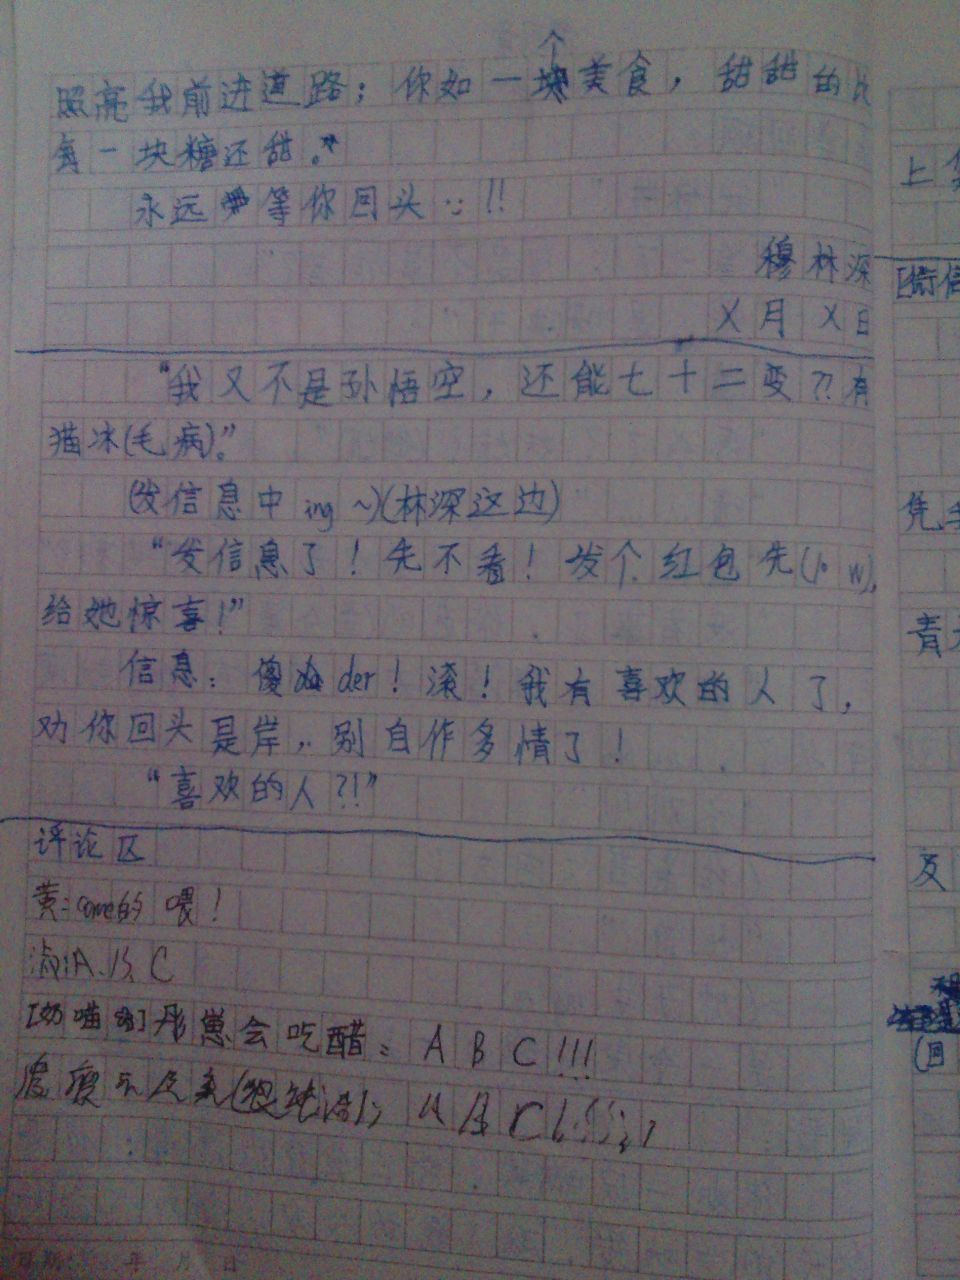 照亮我前进道路；你如一个美食，甜甜的比
每一块糖还甜。
永远等你回头∵!!
穆林深
X月X日
“我又不是孙悟空，还能七十二变??有
猫冰(毛病)。”
(发信息中ing~)(林深这边)
“发信息了！先不看！发个红包先
给她惊喜！”
信息：傻der！滚！我有喜欢的人了，
劝你回头是岸，别自作多情了！
“喜欢的人?!”
评论区
黄:come的喂！
淑:A、B、C
[奶喵]彤崽会吃醋：A B C!!!
上
[微信
凭
青
及
(回
日期: 年 月 日